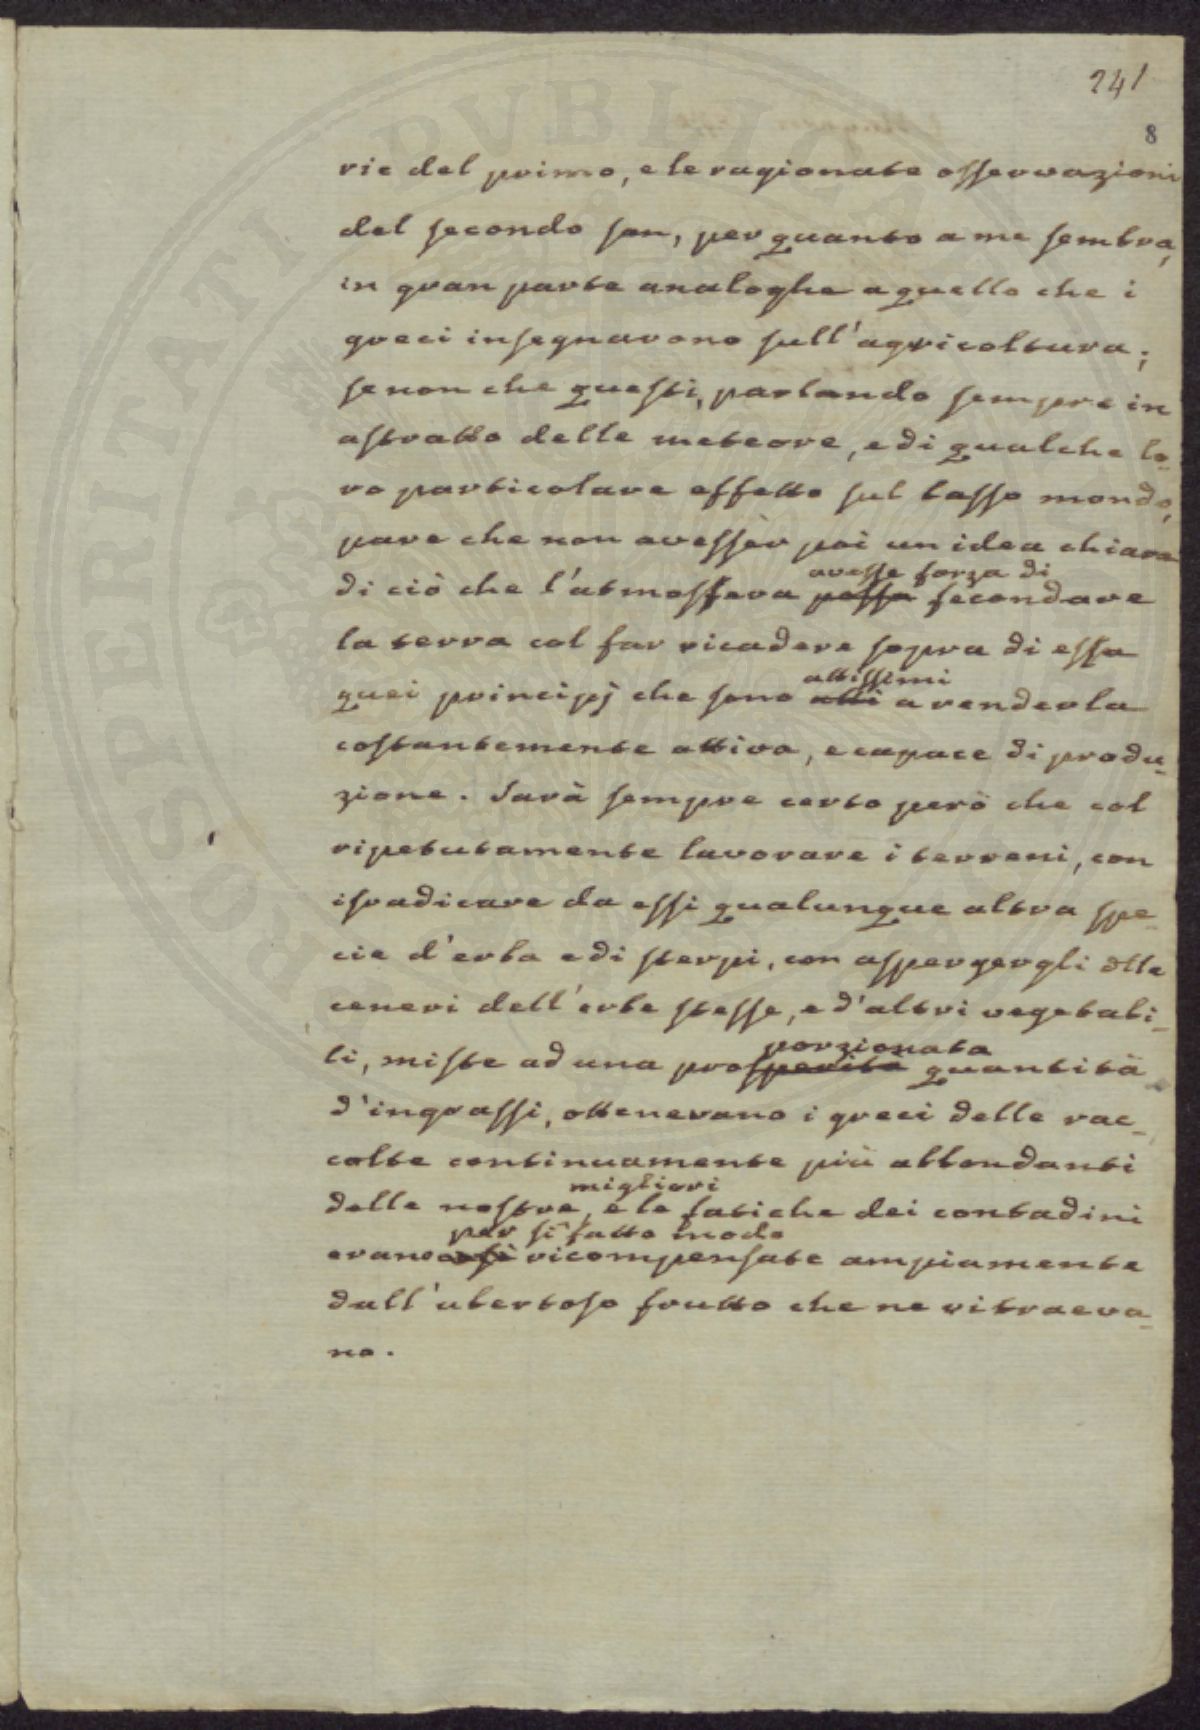 241
8
rie del primo, e le ragionate osservazioni
del secondo son, per quanto a me sembra,
in gran parte analoghe a quello che i
greci insegnarono sull'agricoltura;
se non che questi, parlando sempre in
astratto delle meteore, e di qualche lo-
ro particolare effetto sul basso mondo,
pare che non avesser poi un idea chiara
avesse forza di
di ciò che l'atmosfera possa fecondare
la terra col far ricadere sopra di essa
attissimi
quei principj che sono atti a renderla
costantemente attiva, e capace di produ-
zione. Sarà sempre certo però che col
ripetutamente lavorare i terreni, con
isradicare da essi qualunque altra spe-
cie d'erba e di sterpi, con aspergergli dlle
ceneri dell'erbe stesse, e d'altri vegetabi-
porzionata
li, miste ad una prosperità quantità
d'ingrassi, ottenevano i greci delle rac-
colte continuamente più abbondanti
migliori
delle nostre, e le fatiche dei contadini
per sì fatto modo
erano così ricompensate ampiamente
dall'ubertoso frutto che ne ritraeva-
no.
PROSPERITATI PVBLICAE